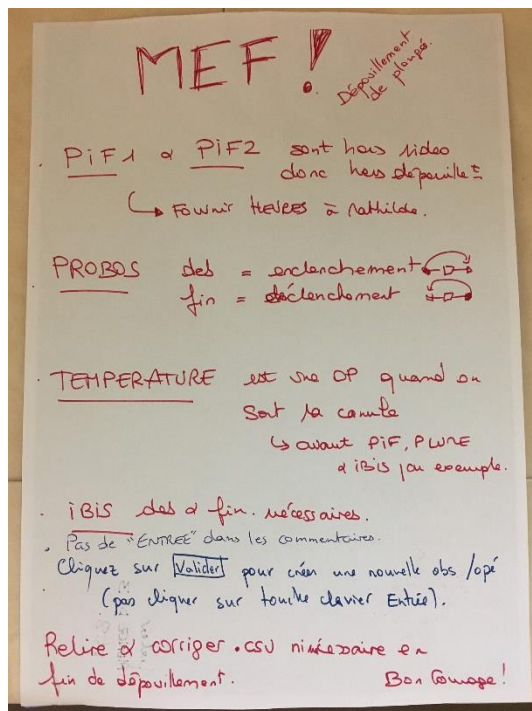 MEF !
Dépouillement
de plongée.
. PiF1 & PiF2 sont hors video
donc hors dépouille
↳ FOURNIR HEURES à Mathilde.
PROBOS deb = enclenchement
fin = déclenchement
. TEMPERATURE est une OP quand on
sort la canule
↳ avant PiF, PLUME
& iBiS par exemple.
. iBiS deb & fin. nécessaires.
. Pas de "ENTREE" dans les commentaires.
Cliquez sur Valider pour créer une nouvelle obs / opé
(pas cliquer sur touche clavier Entrée).
Relire & corriger .csv si nécessaire en
fin de dépouillement. Bon Courage !